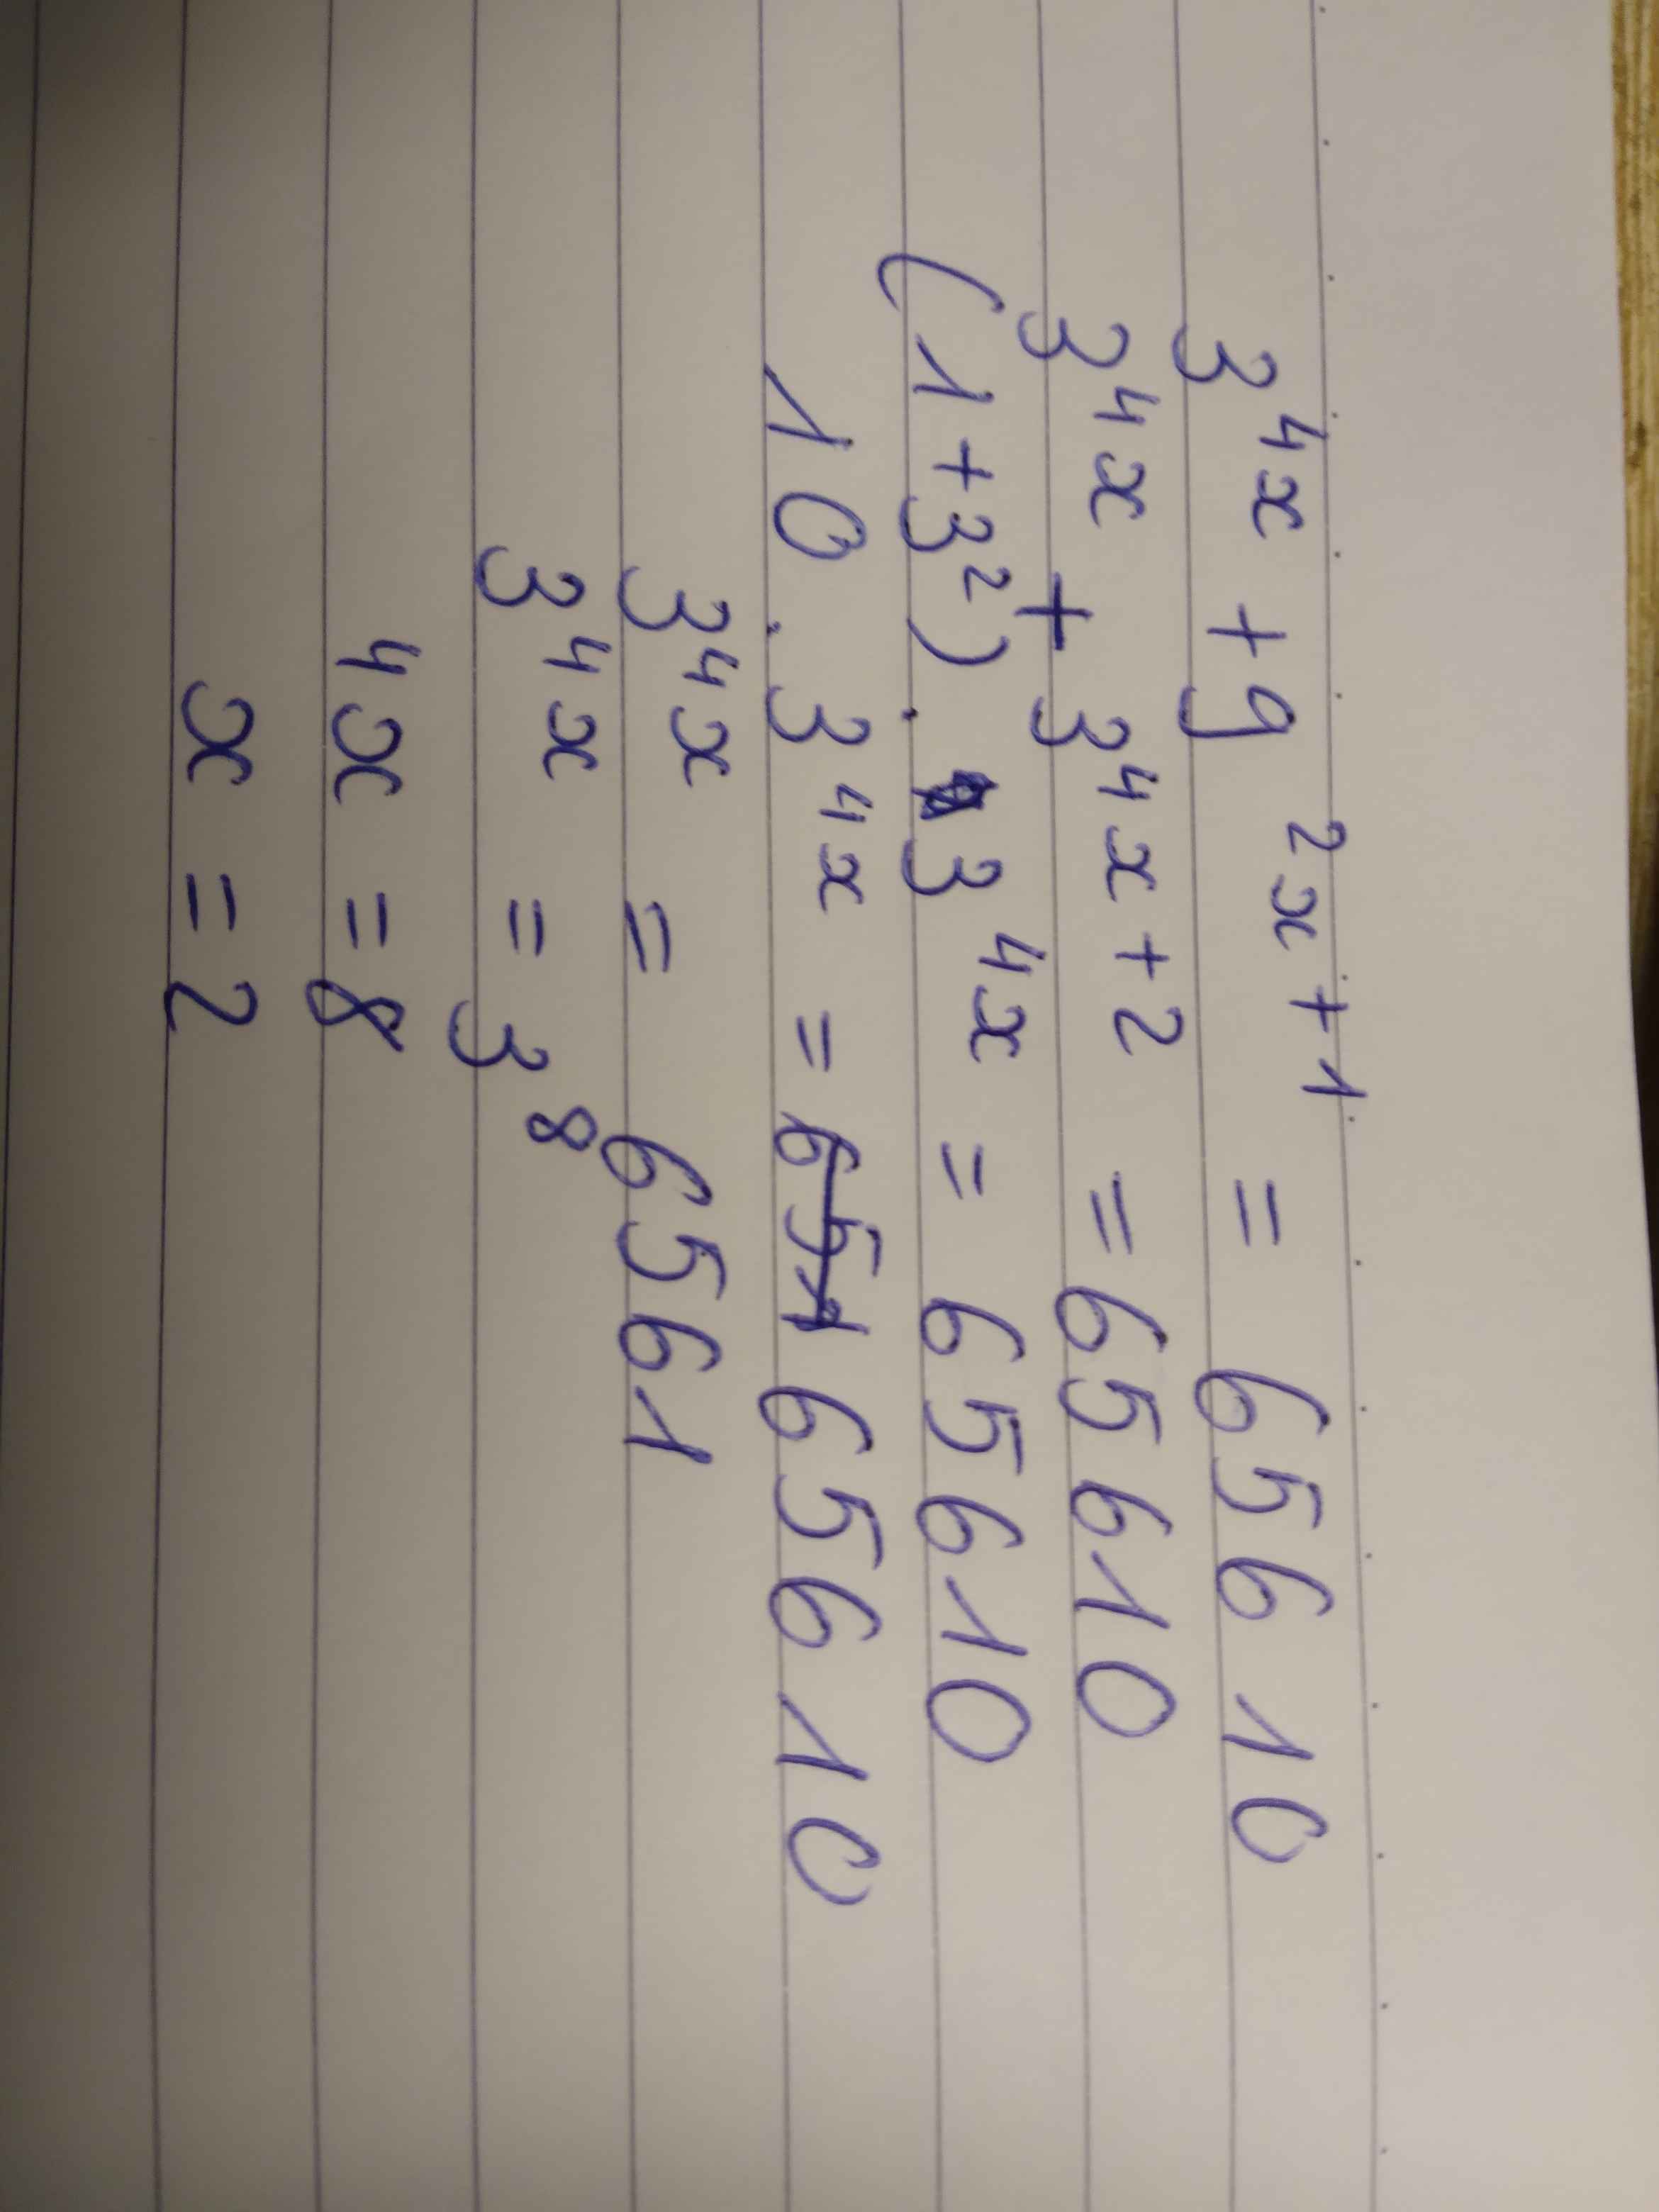 3^4x + 9^2x+1 = 65610
3^4x + 3^4x+2 = 65610
(1+3²) . 3^4x = 65610
10 . 3^4x = 651 65610
3^4x = 6561
3^4x = 3^8
4x = 8
x = 2